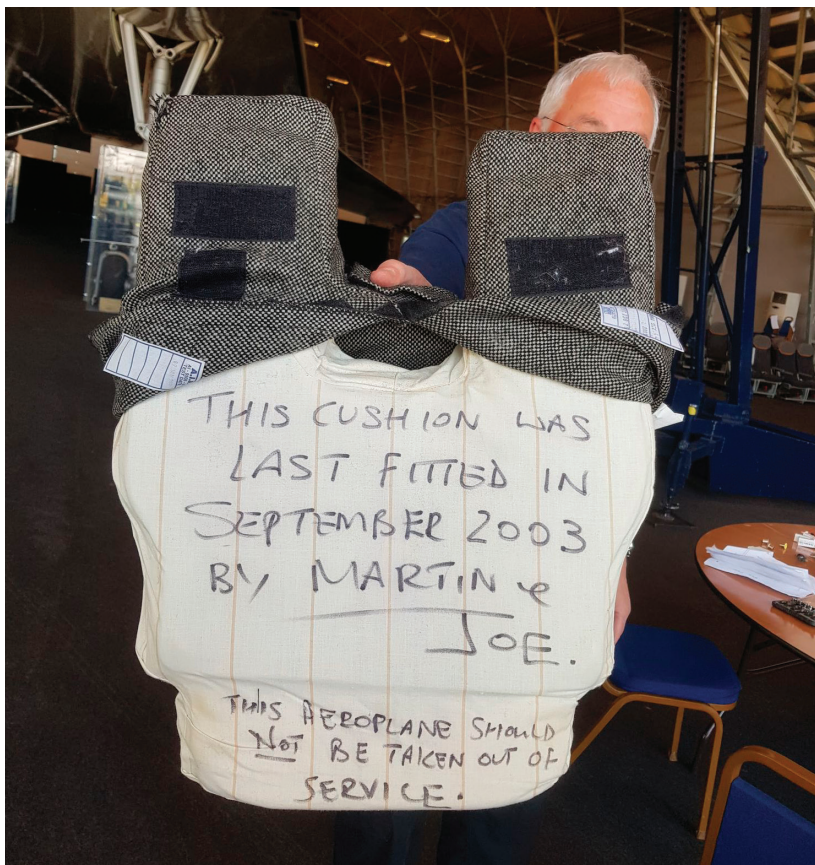 THIS CUSHION WAS
LAST FITTED IN
SEPTEMBER 2003
BY MARTIN &
JOE.
THIS AEROPLANE SHOULD
NOT BE TAKEN OUT OF
SERVICE.